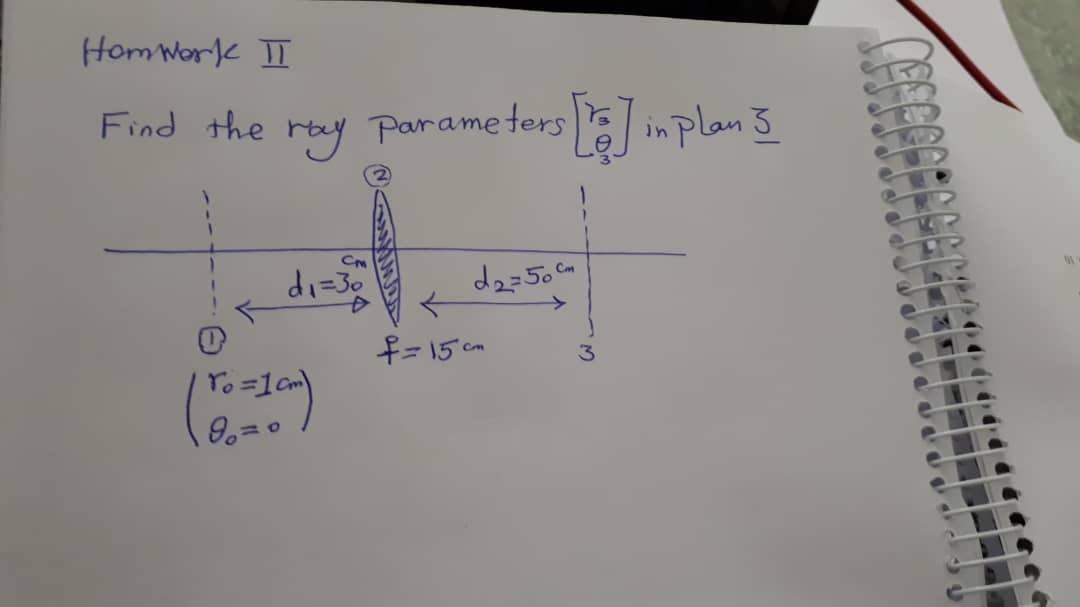 Homwork II
Find the ray parameters [r₃ θ₃] in plan 3
②
d₁=30 cm
d₂=50 cm
①
f=15 cm
3
r₀=1cm
θ₀=0